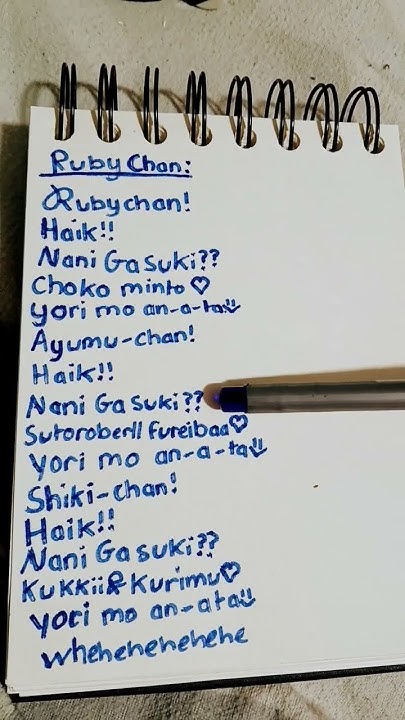 Ruby Chan:
Rubychan!
Haik!!
Nani Gasuki??
Choko minto♡
yori mo an-a-ta
Ayumu-chan!
Haik!!
Nani Gasuki??
Sutoroberll fureibaa♡
yori mo an-a-ta
Shiki-chan!
Haik!!
Nani Gasuki??
Kukkii&Kurimu♡
yori mo an-ata
whehehehehehe